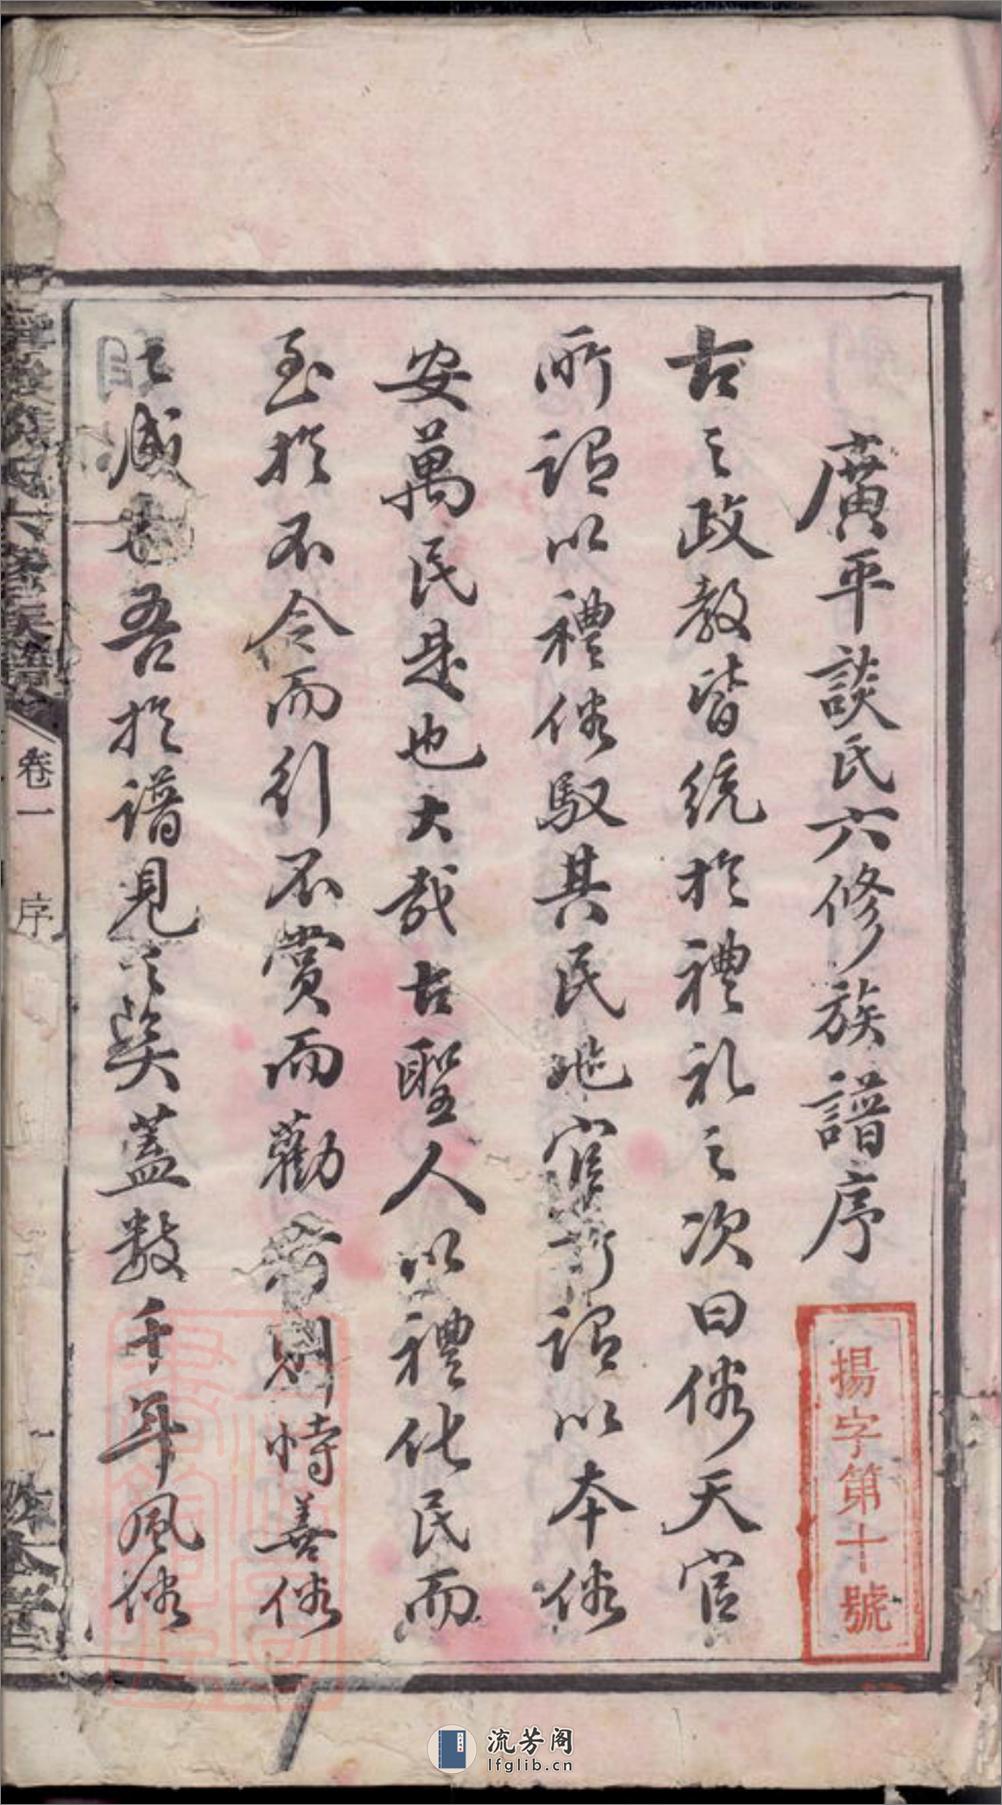 廣平談氏六修族譜序
古之政教皆統於禮礼之次曰俗天官
所謂以禮俗馭其民地官所謂以本俗
安萬民是也大哉古聖人以禮化民而
至於不令而行不賞而勸者則恃善俗
之盛也吾於譜見之矣蓋数千年風俗
揚字第十號
卷一
序
一
流芳阁
lfglib.cn